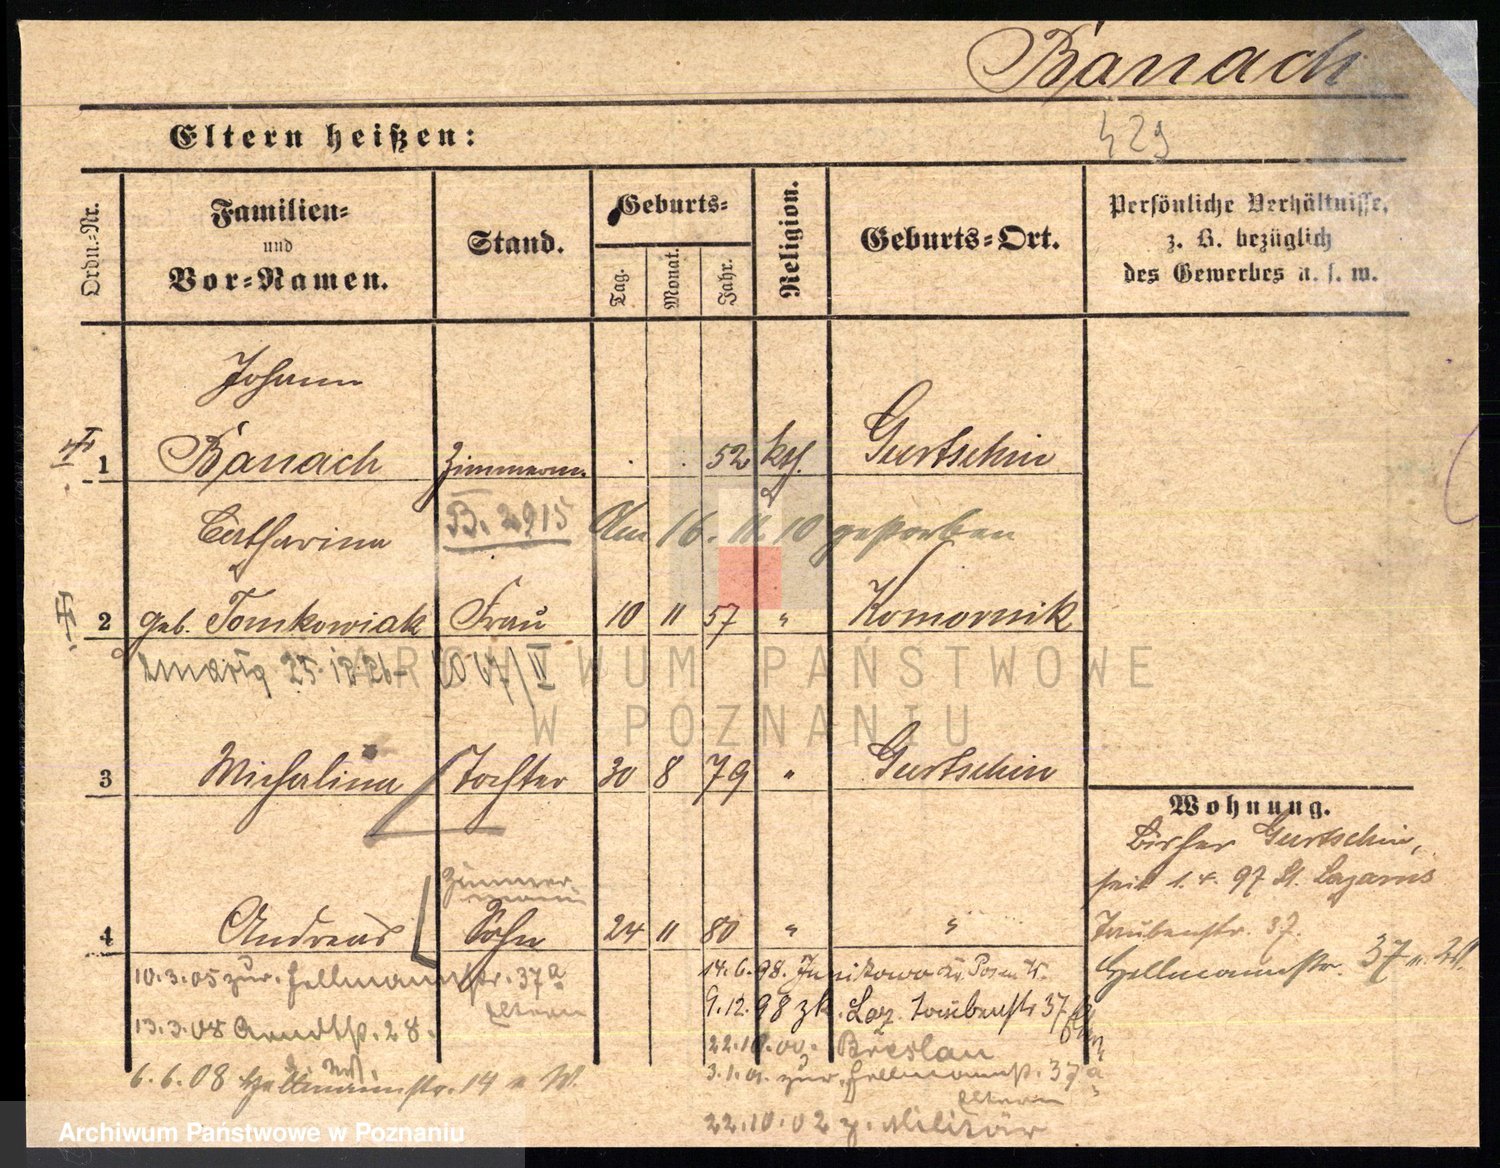 Banach
429
Eltern heißen:
Ordn.-Nr.
Familien-
und
Vor-Namen.
Stand.
Geburts-
Tag.
Monat.
Jahr.
Religion.
Geburts-Ort.
Persönliche Verhältnisse,
z. B. bezüglich
des Gewerbes u. s. w.
Johann
1 Banach Zimmerm. 52 kth. Gurtschin
Catharina B. 2915 Am 16. 11. 10 gestorben
2 geb. Tomkowiak Frau 10 11 57 " Komornik
zmarła 25.12.26
ARCHIWUM PAŃSTWOWE
W POZNANIU
3 Michalina Tochter 30 8 79 " Gurtschin
Wohnung.
Bisher Gurtschin,
seit 1.4.97 St. Lazarus
Taubenstr. 37.
Hellmannstr. 37
Zimmer-
mann
4 Andreas Sohn 24 11 80 " "
10.3.05 zur. Hellmannstr. 37a
Eltern
13.3.08 Arndtstr. 28.
6.6.08 Hellmannstr. 14 W.
14.6.98. Junikowo Kr. Posen W.
9.12.98 zk. Laz. Taubenstr 37
22.10.00. Breslau
3.1.01. zur. Hellmannstr. 37a
Eltern
22.10.02 z. Militär
Archiwum Państwowe w Poznaniu